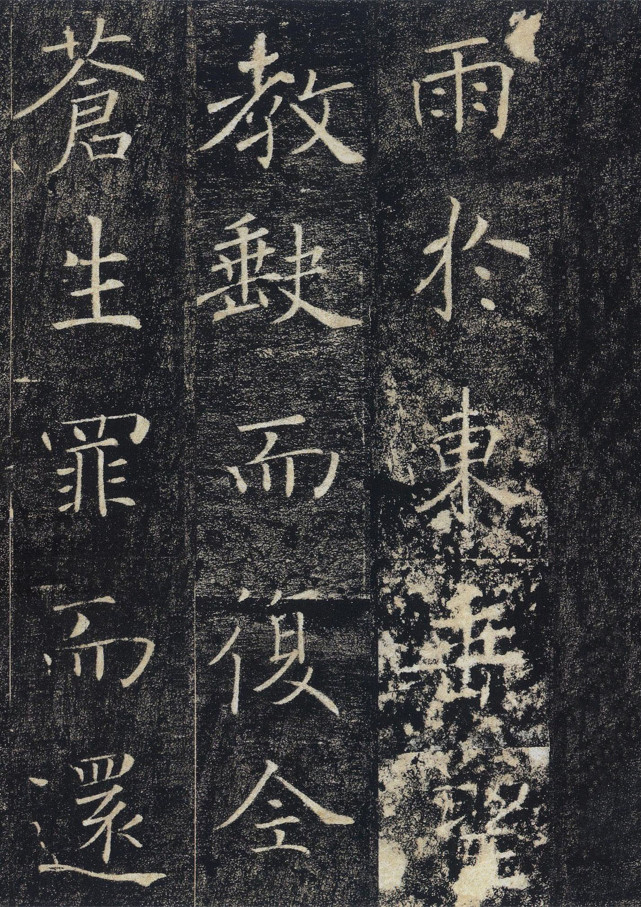 雨於東垂聖
教缺而復全
蒼生罪而還